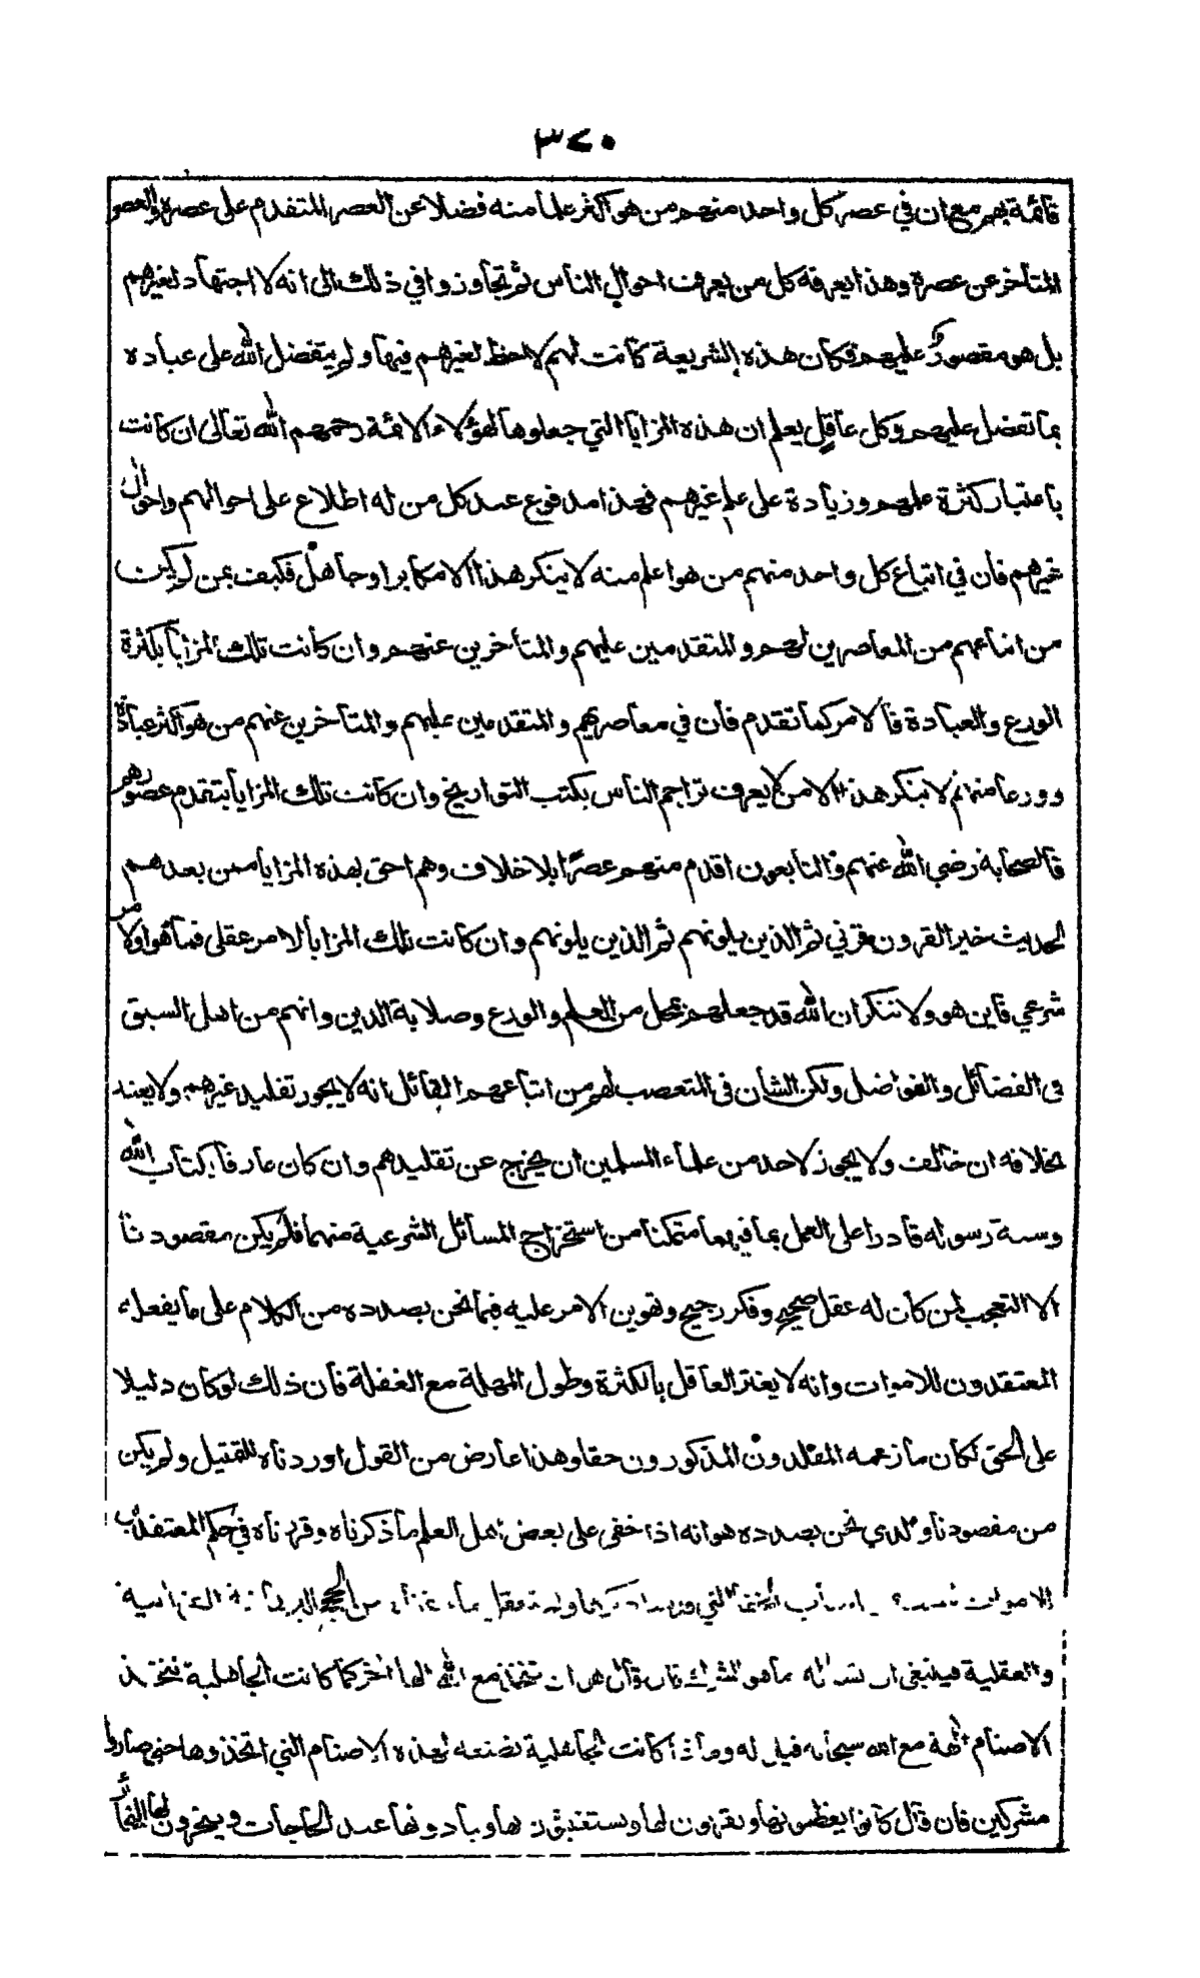 ٣٧٠
قائمة بهم مع ان في عصر كل واحد منهم من هو اكثر علما منه فضلا عن العصر المتقدم على عصره والعصر
المتأخر عن عصره وهذا يعرفه كل من يعرف احوال الناس ثم تجاوزوا في ذلك الى انه لا اجتهاد لغيرهم
بل هو مقصور عليهم فكان هذه الشريعة كانت لهم لا حظ لغيرهم فيها ولم يتفضل الله على عباده
بما تفضل عليهم وكل عاقل يعلم ان هذه المزايا التي جعلوها لهؤلاء الائمة رحمهم الله تعالى ان كانت
باعتبار كثرة علمهم وزيادة على علم غيرهم فهذا مدفوع عند كل من له اطلاع على احوالهم واحوال
غيرهم فان في اتباع كل واحد منهم من هو اعلم منه لا ينكر هذا الا مكابر او جاهل فكيف بمن لم يكن
من اتباعهم من المعاصرين لهم والمتقدمين عليهم والمتأخرين عنهم وان كانت تلك المزايا بكثرة
الورع والعبادة فالامر كما تقدم فان في معاصريهم والمتقدمين عليهم والمتأخرين عنهم من هو اكثر عبادة
وورعا منهم لا ينكر هذا الا من لا يعرف تراجم الناس بكتب التواريخ وان كانت تلك المزايا بتقدم عصورهم
فالصحابة رضي الله عنهم والتابعون اقدم منهم عصرًا بلا خلاف وهم احق بهذه المزايا ممن بعدهم
لحديث خير القرون قرني ثم الذين يلونهم ثم الذين يلونهم وان كانت تلك المزايا لامر عقلي فما هو او لامر
شرعي فاين هو ولا ننكر ان الله قد جعلهم بمحل من العلم والورع وصلابة الدين وانهم من اهل السبق
في الفضائل والفواضل ولكن الشان في المتعصب لهم من اتباعهم القائل انه لا يجوز تقليد غيرهم ولا يعتد
بخلافه ان خالف ولا يجوز لاحد من علماء المسلمين ان يخرج عن تقليدهم وان كان عارفا بكتاب الله
وسنة رسوله قادرا على العمل بما فيهما متمكنا من استخراج المسائل الشرعية منهما فلم يكن مقصودنا
الا التعجب لمن كان له عقل صحيح وفكر رجيح وتهوين الامر عليه فيما نحن بصدده من الكلام على ما يفعله
المعتقدون للاموات وانه لا يغتر العاقل بالكثرة وطول المهلة مع الغفلة فان ذلك لو كان دليلا
على الحق لكان ما زعمه المقلدون المذكورون حقا وهذا عارض من القول اوردناه للتمثيل ولم يكن
من مقصودنا والذي نحن بصدده هو انه اذا خفي على بعض اهل العلم ما ذكرناه وقررناه في حكم المعتقدين
للاموات التي من الحجج القرآنية
والعقلية فينبغي ان نسأله ما هو الشرك فان قال هو ان تتخذ مع الله الها اخر كما كانت الجاهلية تتخذ
الاصنام الهة مع الله سبحانه قيل له وماذا كانت الجاهلية تصنعه لهذه الاصنام التي اتخذوها حتى صاروا
مشركين فان قال كانوا يعظمونها ويقربون لها ويستغيثون بها وينادونها عند الحاجات وينحرون لها النحائر